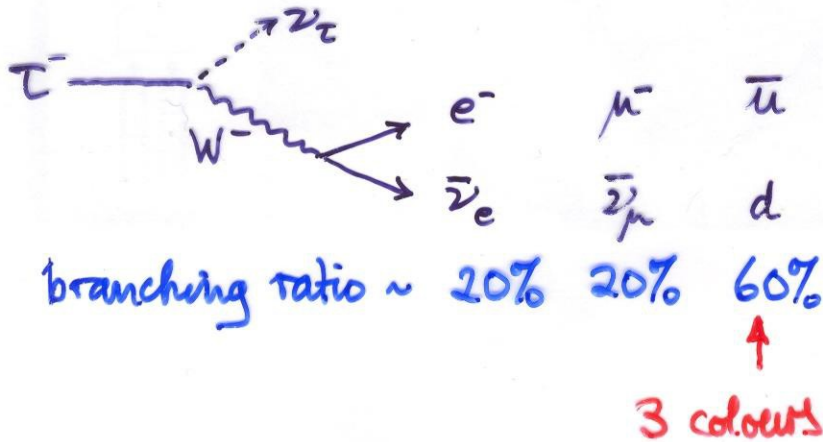 ν_τ
τ⁻
W⁻
e⁻ μ⁻ ū
ν̄_e ν̄_μ d
branching ratio ~ 20% 20% 60%
3 colours